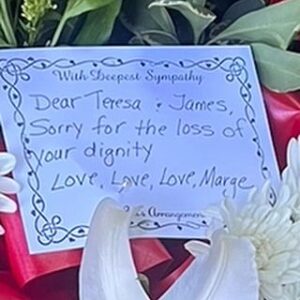 With Deepest Sympathy
Dear Teresa & James,
Sorry for the loss of
your dignity
Love, Love, Love, Marge
Arrangement